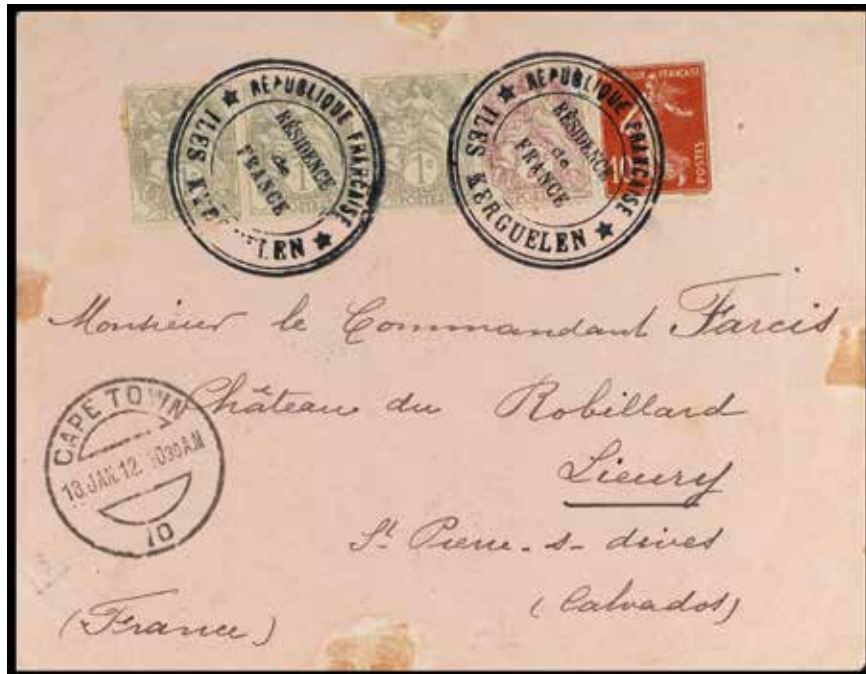 ★ RÉPUBLIQUE FRANÇAISE ★
ILES KERGUELEN
RÉSIDENCE
de
FRANCE
★ RÉPUBLIQUE FRANÇAISE ★
ILES KERGUELEN
RÉSIDENCE
de
FRANCE
1c
1c
10
POSTES
Monsieur le Commandant Farcis
Château du Robillard
Lieury
St Pierre-s-dives
(Calvados)
(France)
CAPE TOWN
13.JAN.12.
10